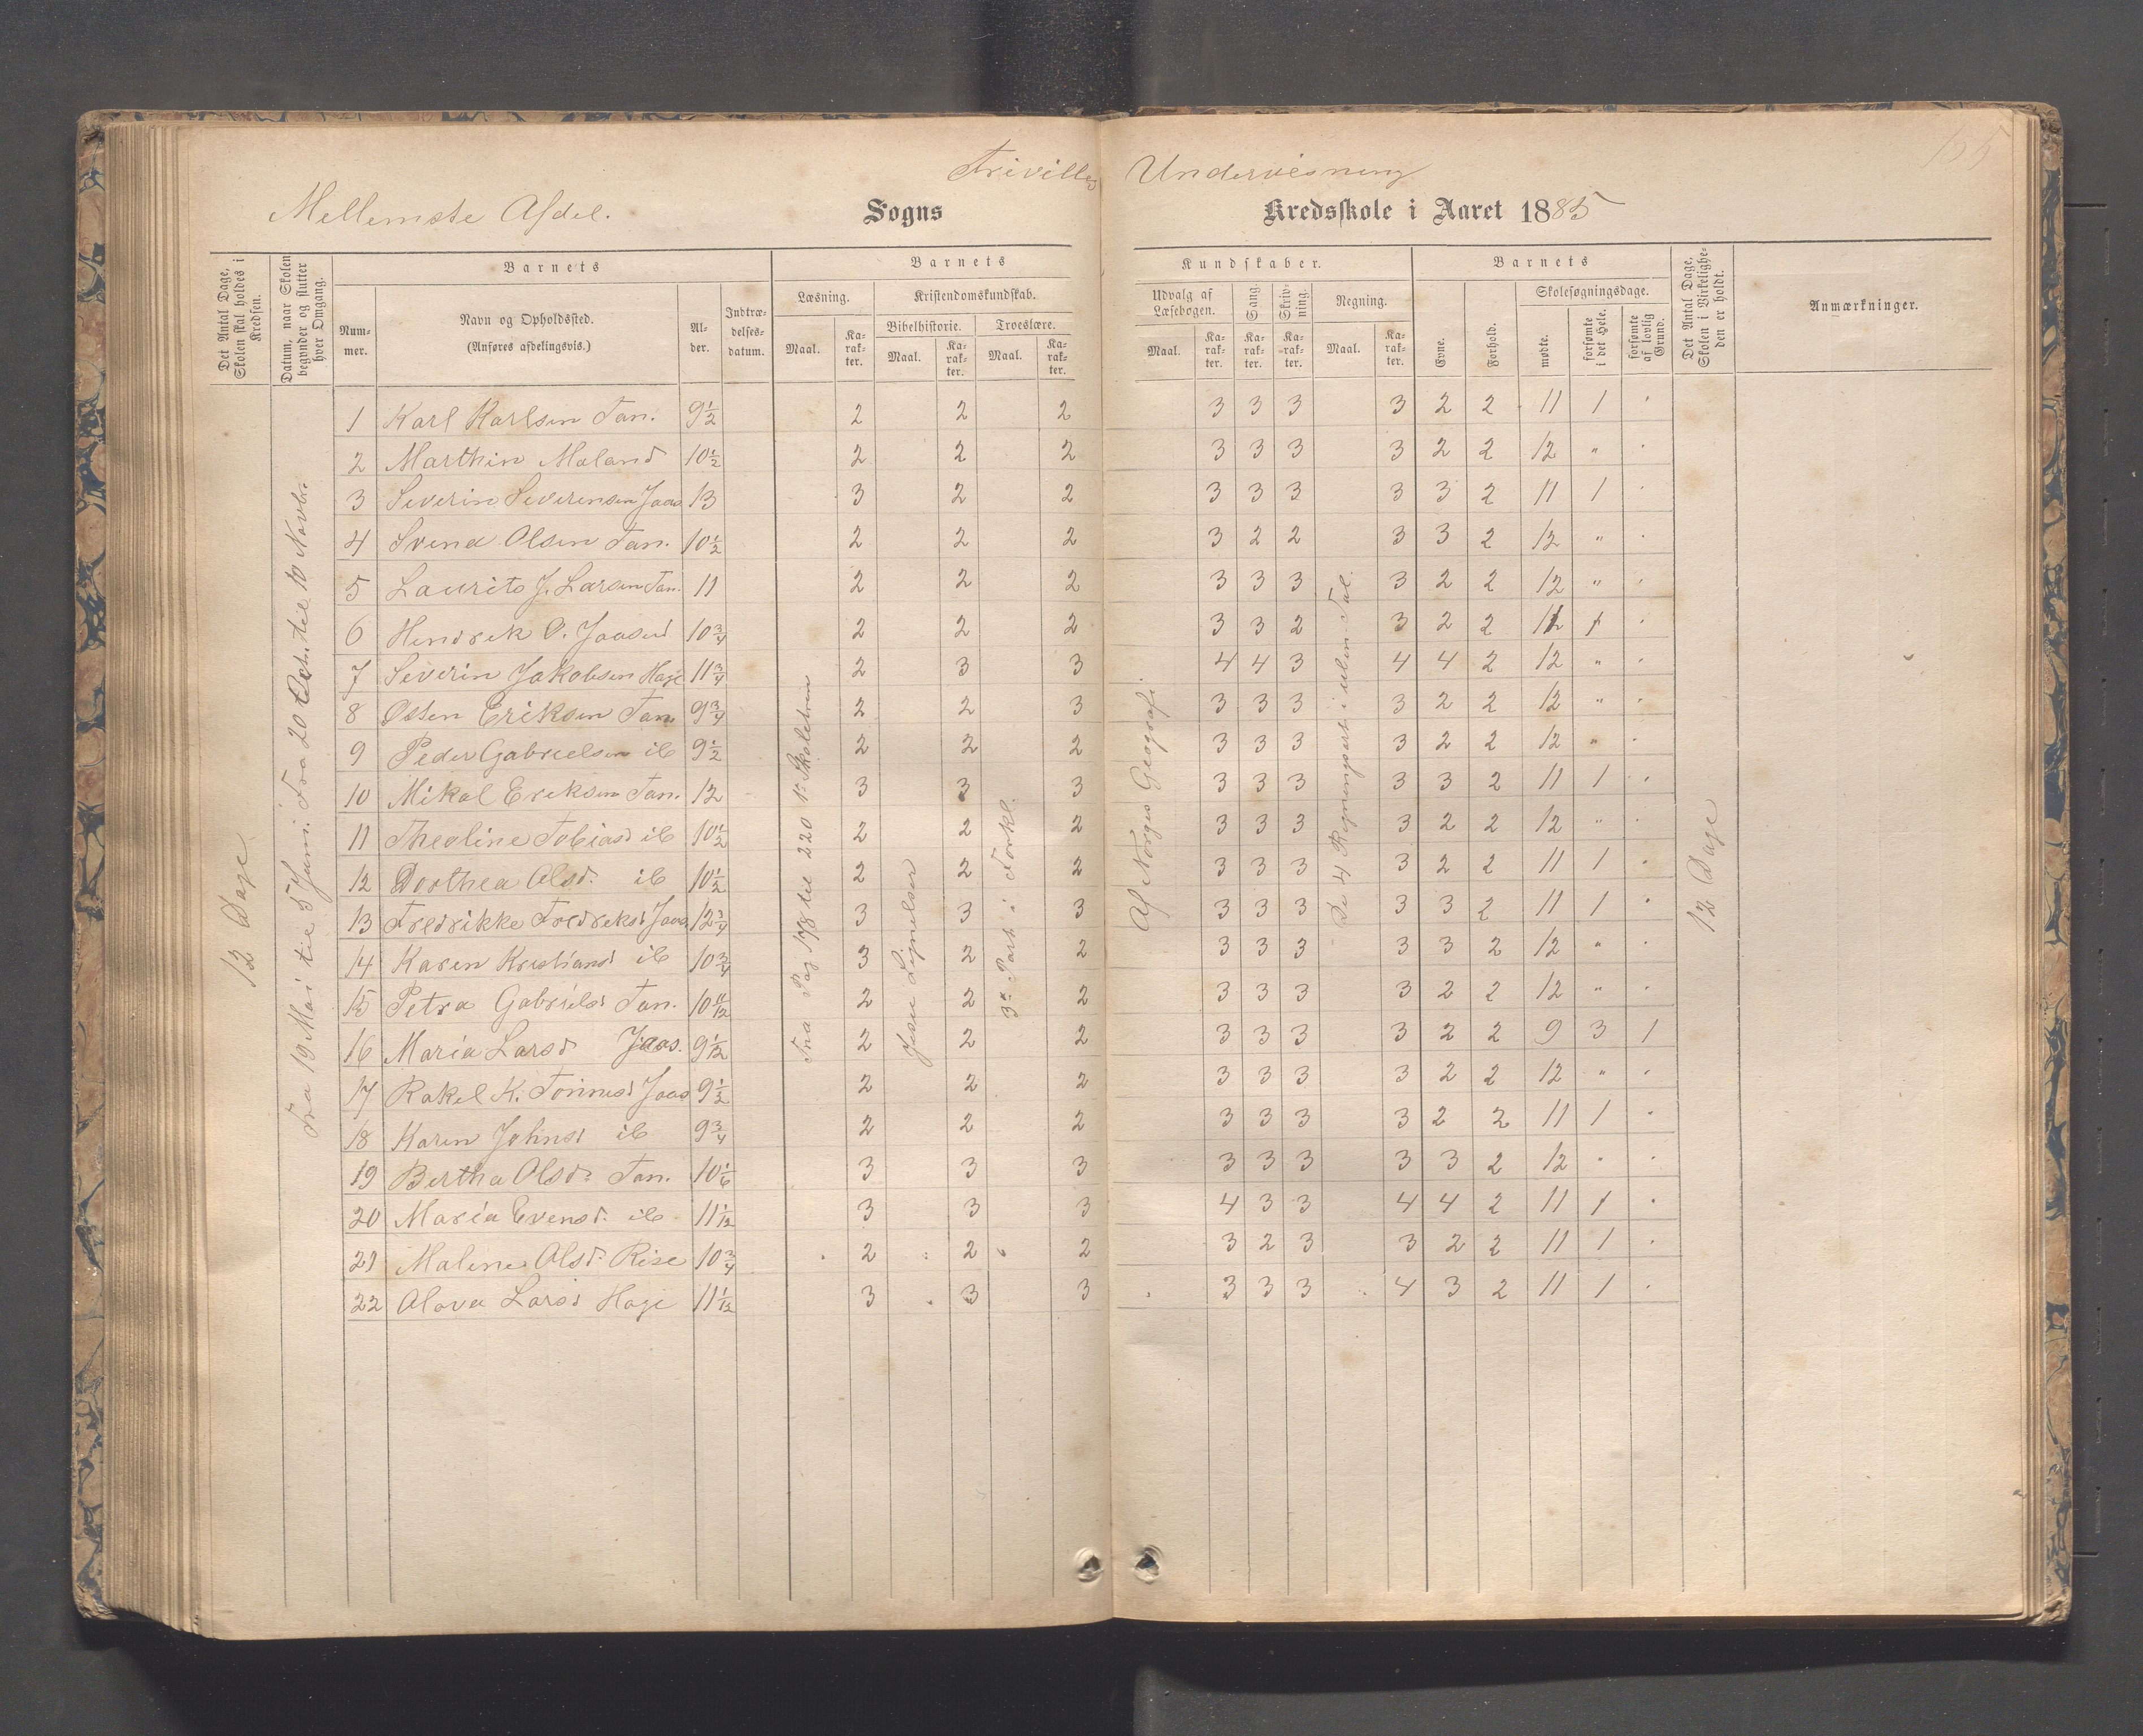 155
Frivillig Undervisning
Mellemste Afdel. Sogns Kredsskole i Aaret 1885
Det Antal Dage, Skolen skal holdes i Kredsen.
Datum, naar Skolen begynder og slutter hver Omgang.
Barnets
Nummer.
Navn og Opholdssted.
(Anføres afdelingsvis.)
Alder.
Indtrædelsesdatum.
Barnets Kundskaber.
Læsning. Maal. Karakter.
Kristendomskundskab.
Bibelhistorie. Maal. Karakter.
Troeslære. Maal. Karakter.
Udvalg af Læsebogen. Maal. Karakter.
Sang. Karakter.
Skrivning. Karakter.
Regning. Maal. Karakter.
Barnets
Evne.
Forhold.
Skolesøgningsdage.
mødte.
forsømte i det Hele.
forsømte af lovlig Grund.
Det Antal Dage, Skolen i Virkeligheden er holdt.
Anmærkninger.
12 Dage
Fra 19 Mai til 5 Juni. Fra 20 Octr. til 10 Novbr.
Fra Pag 178 til 220 1ste Skoletrin
Jesu Lignelser
3die Part i Forkl.
Af Norges Geografi
De 4 Regningsart i ulben. Tal.
12 Dage
1 Karl Karlsen Tan. 9 1/2 2 2 2 3 3 3 3 2 2 11 1 .
2 Marthin Maland 10 1/2 2 2 2 3 3 3 3 2 2 12 " .
3 Severin Severensen Jaas 13 3 2 2 3 3 3 3 3 2 11 1 .
4 Svend Olsen Tan. 10 1/2 2 2 2 3 2 2 3 3 2 12 " .
5 Laurits J. Larsen Tan. 11 2 2 2 3 3 3 3 2 2 12 " .
6 Hendrek O. Jaasund 10 3/4 2 2 2 3 3 2 3 2 2 11 1 .
7 Severin Jakobsen Hage 11 3/4 2 3 3 4 4 3 4 4 2 12 " .
8 Østen Eriksen Tan 9 3/4 2 2 3 3 3 3 3 2 2 12 " .
9 Peder Gabrielsen ib 9 1/2 2 2 2 3 3 3 3 2 2 12 " .
10 Mikal Ereksen Tan. 12 3 3 3 3 3 3 3 3 2 11 1 .
11 Theoline Tobiasd ib 10 1/2 2 2 2 3 3 3 3 2 2 12 " .
12 Dorthea Olsd. ib 10 1/2 2 2 2 3 3 3 3 2 2 11 1 .
13 Fredrikke Fredreksd Jaas 12 3/4 3 3 3 3 3 3 3 3 2 11 1 .
14 Karen Kristiansd ib 10 3/4 3 2 2 3 3 3 3 3 2 12 " .
15 Petra Gabrielsd Tan. 10 11/12 2 2 2 3 3 3 3 2 2 12 " .
16 Maria Larsd Jaas. 9 1/12 2 2 2 3 3 3 3 2 2 9 3 1
17 Rakel K. Tønnesd Jaas 9 1/2 2 2 2 3 3 3 3 2 2 12 " .
18 Karen Johnsd ib 9 3/4 2 2 2 3 3 3 3 2 2 11 1 .
19 Bertha Olsd. Tan. 10 1/6 3 3 3 3 3 3 3 3 2 12 " .
20 Maria Evensd. ib 11 1/12 3 3 3 4 3 3 4 4 2 11 1 .
21 Malene Olsd. Rise 10 3/4 2 2 2 3 2 3 3 2 2 11 1 .
22 Olava Larsd Hage 11 1/12 3 3 3 3 3 3 4 3 2 11 1 .